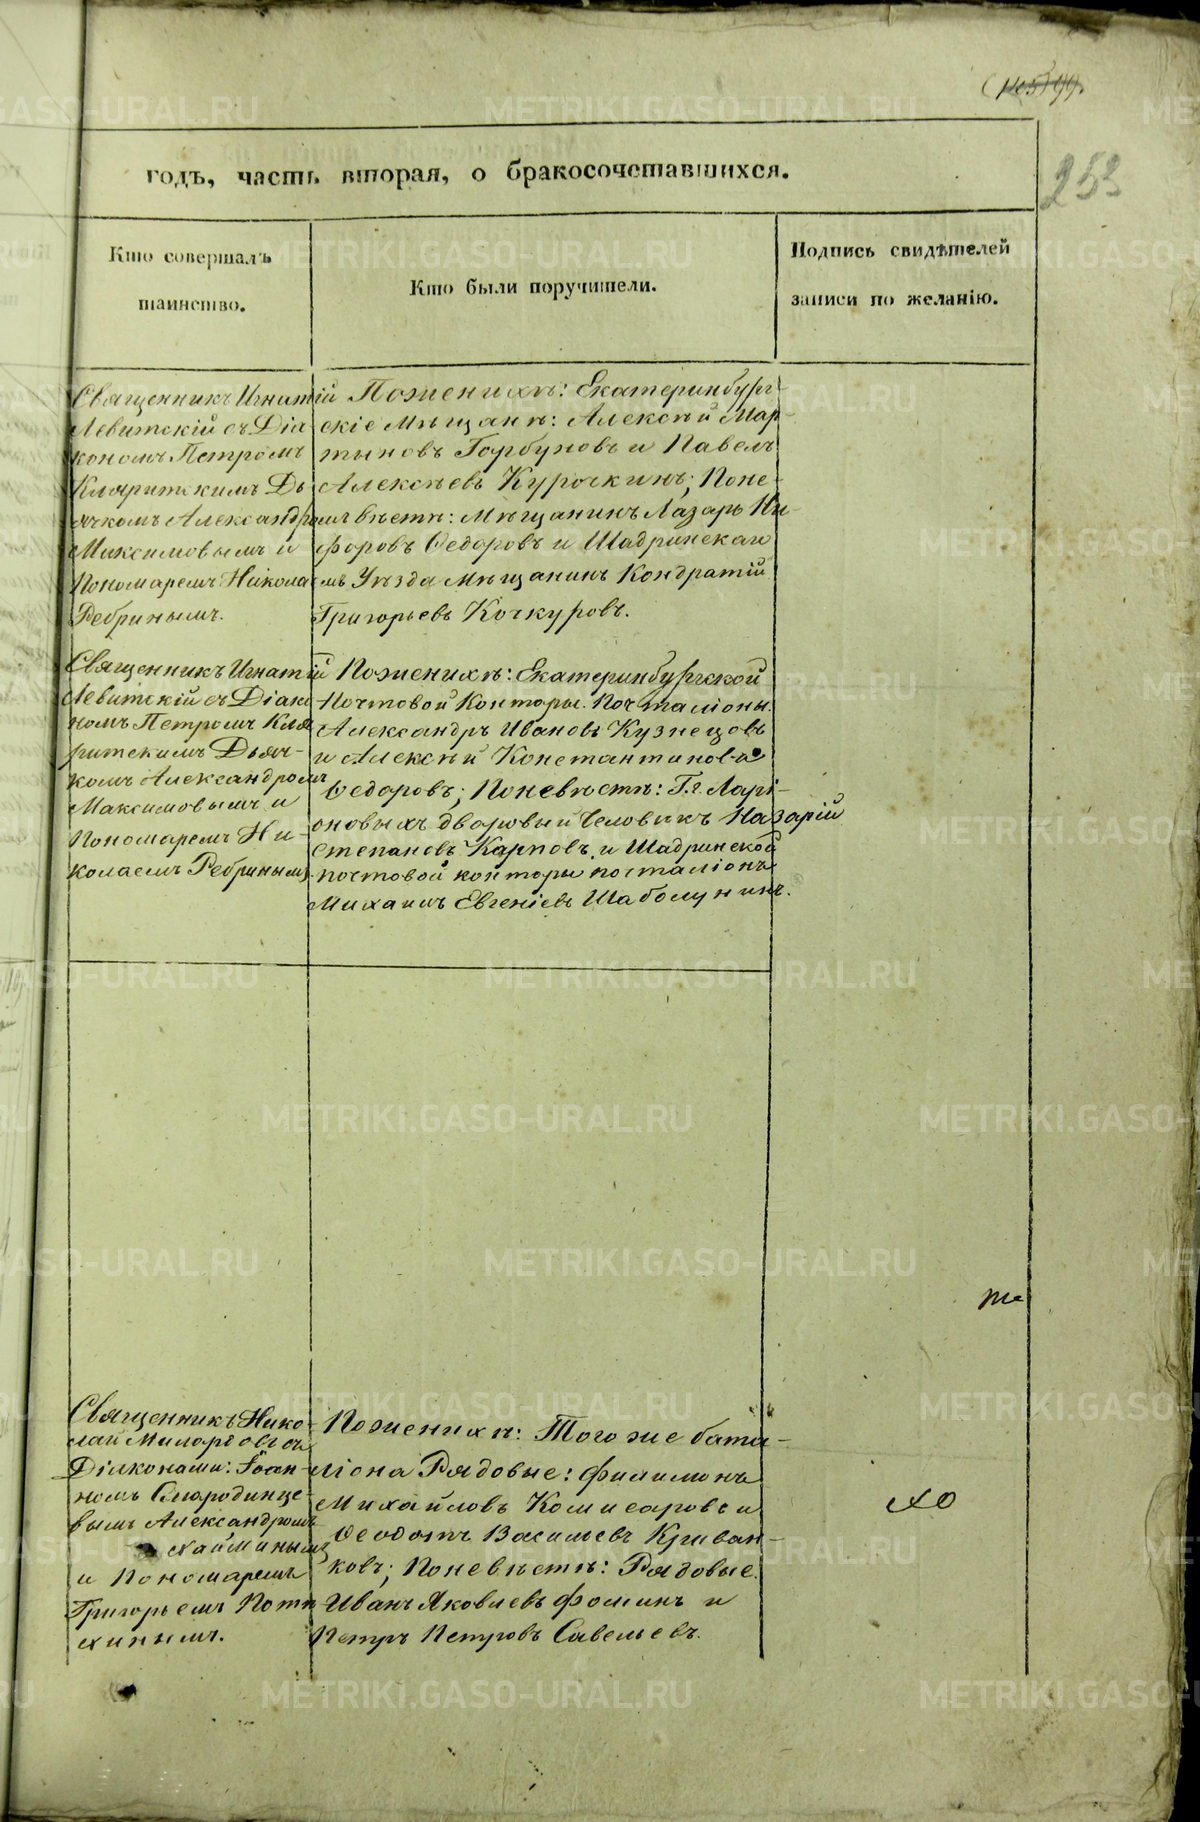 253
годъ, часть вторая, о бракосочетавшихся.
Кто совершалъ
таинство.
Кто были поручители.
Подпись свидѣтелей
записи по желанію.
Священникъ Игнатій
Левитскій съ Діа-
кономъ Петромъ
Кляритскимъ Дь-
ячкомъ Александромъ
Максимовымъ и
Пономаремъ Николаемъ
Ребринымъ.
По женихѣ: Екатеринбург-
скіе Мѣщане: Алексѣй Мар-
тыновъ Горбуновъ и Павелъ
Алексѣевъ Курочкинъ; По не-
вѣстѣ: Мѣщанинъ Лазарь Ни-
форовъ Ѳедоровъ и Шадринскаго
Уѣзда мѣщанинъ Кондратій
Григорьевъ Кочкуровъ.
Священникъ Игнатій
Левитскій съ Діако-
номъ Петромъ Кля-
ритскимъ Дьяч-
комъ Александромъ
Максимовымъ и
Пономаремъ Ни-
колаемъ Ребринымъ.
По женихѣ: Екатеринбургской
Почтовой Конторы Почталіоны
Александръ Ивановъ Кузнецовъ
и Алексѣй Константиновъ
Ѳедоровъ; По невѣстѣ: Г.г. Ларі-
оновыхъ дворовый Человѣкъ Назарій
Степановъ Карповъ и Шадринской
почтовой конторы почталіонъ
Михаилъ Евгеніевъ Шаболунинъ.
Священникъ Нико-
лай Милордовъ съ
Діаконами: Іоан-
номъ Смородинце-
вымъ Александромъ
Хайминымъ
и Пономаремъ
Григорьемъ Поти-
хинымъ.
По женихѣ: Того же бата-
ліона Рядовые: Филимонъ
Михайловъ Комисаровъ и
Ѳеодотъ Васильевъ Криван-
ковъ; По невѣстѣ: Рядовые
Иванъ Яковлевъ Фоминъ и
Петръ Петровъ Савельевъ.
хо
METRIKI.GASO-URAL.RU